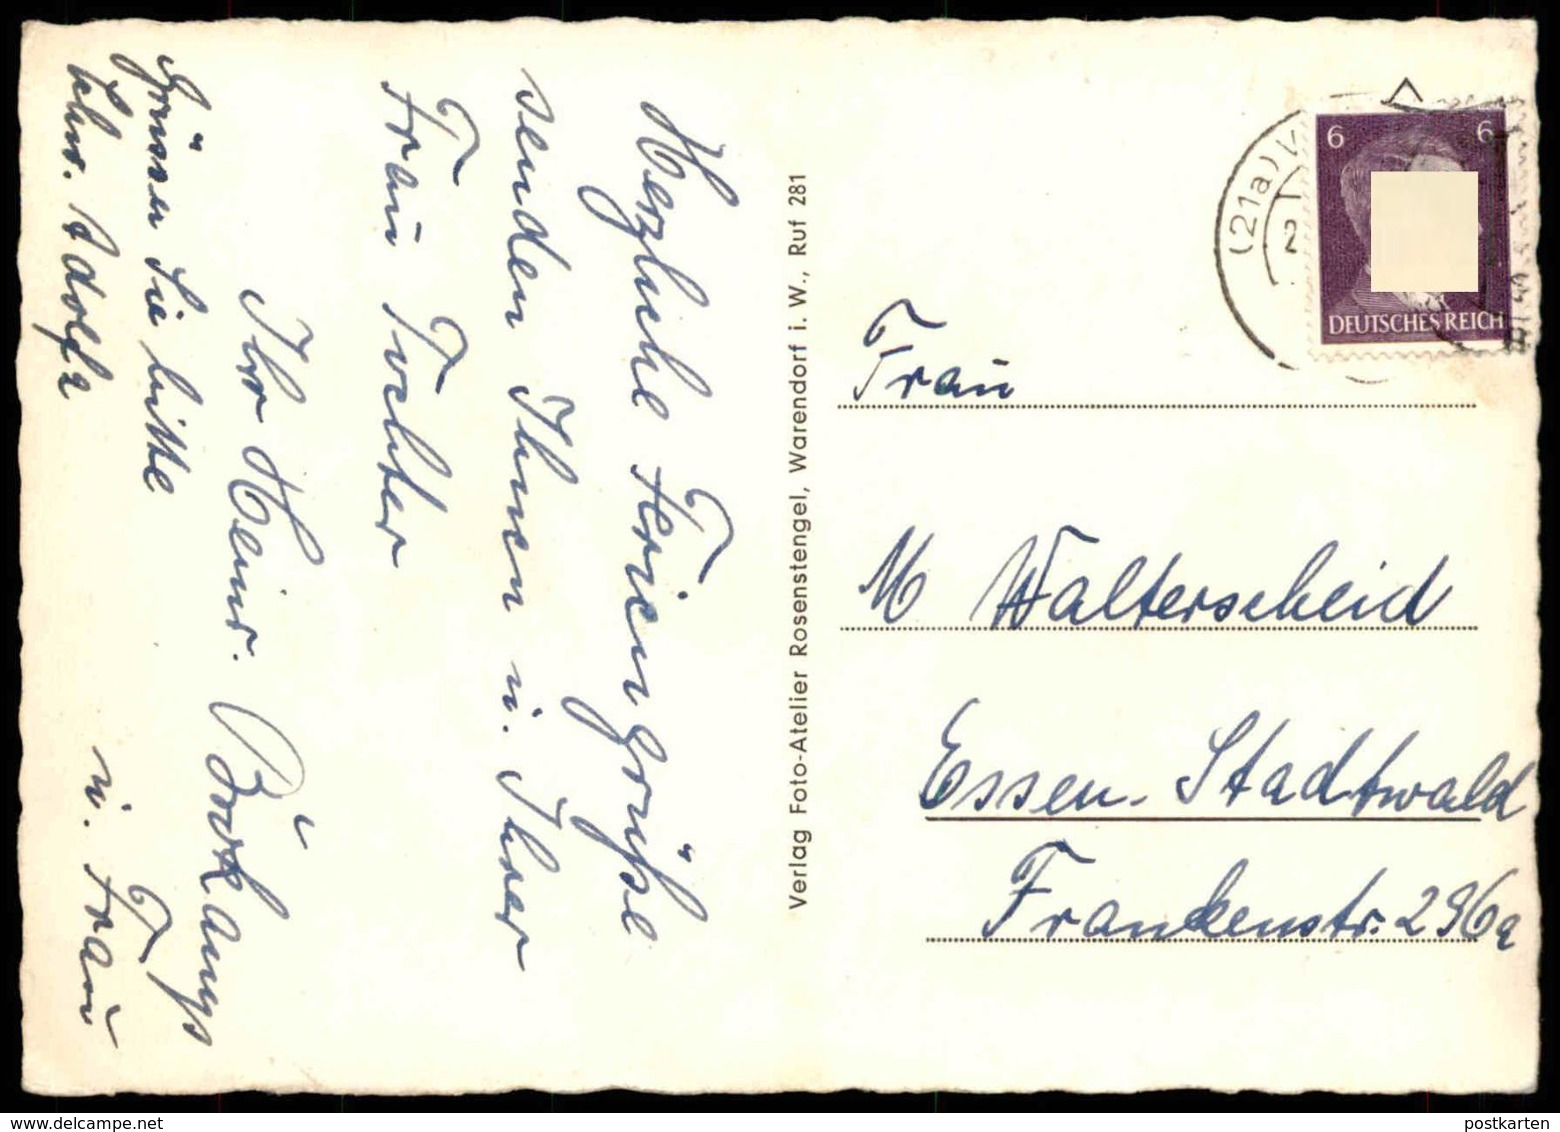 Herzliche Feriengrüße
senden Ihnen u. Ihrer
Frau Tochter
Ihr Heinr.
u. Frau
Grüssen Sie bitte
Schw. Adolfa
Verlag Foto-Atelier Rosenstengel, Warendorf i. W., Ruf 281
(21a)
6 6
DEUTSCHES REICH
Frau
M Walterscheid
Essen-Stadtwald
Frankenstr. 296a
postkarten